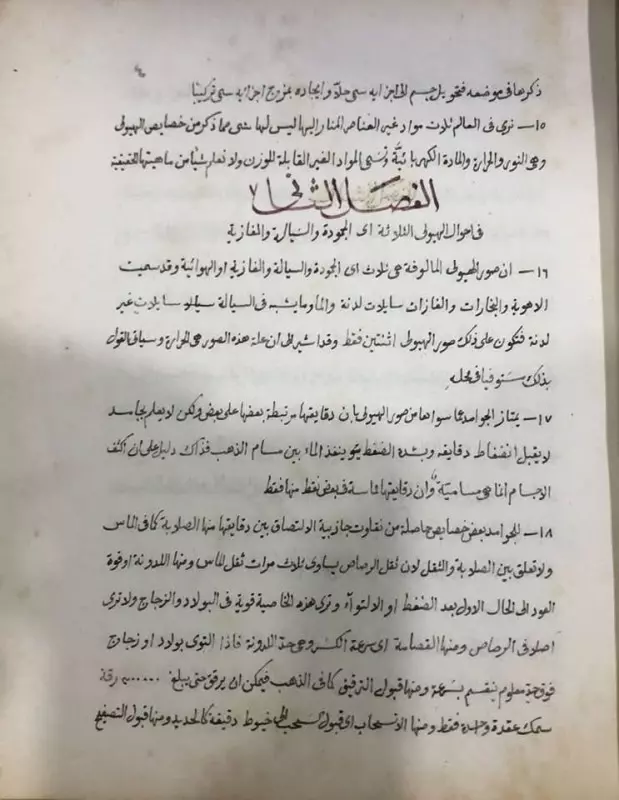 ٤
ذكرها فى موضعه فتحويل جسم الى اجزايه سمى حلاً وايجاده بمزوج اجزايه سمى تركيبًا
١٥— نرى فى العالم ثلاث مواد غير العناصر المشار اليها ليس لها شى مما ذكر من خصايص الهيولى
وهى النور والحرارة والمادة الكهربائية وتسمى المواد الغير القابلة للوزن ولا نعلم شيأ من ماهيتها الحقيقية
الفصل الثانى
فى احوال الهيولى الثلاثة اى الجمودة والسيالة والغازية
١٦— ان صور الهيولى المالوفة هى ثلاث اى الجمودة والسيالة والغازية او الهوائية وقد سميت
الاهوية والبخارات والغازات سايلات لدنة والماء وما يشبه فى السيالة سيلا سايلات غير
لدنة فتكون على ذلك صور الهيولى اثنتين فقط وقد اشير الى ان علة هذه الصور هى الحرارة وسياق القول
بذلك مستوفيا فى محله
١٧— يمتاز الجوامد عما سواها من صور الهيولى بان دقايقها مرتبطة بعضها على بعض ولكن لا يعلم بجامد
لا يقبل انضغاط دقايقه وبشده الضغط ينفذ الماء بين مسام الذهب فذاك دليل على ان اكثف
الاجسام انما هى مسامية وان دقايقها مماسة فى بعض نقط منها فقط
١٨— للجوامد بعض خصايص حاصلة من تفاوت جاذبية الالتصاق بين دقايقها منها الصلابة كما فى الماس
ولا تعلق بين الصلابة والثقل لان ثقل الرصاص يساوى ثلاث مرات ثقل الماس ومنها اللدونة او قوة
العود الى الحال الاول بعد الضغط او الالتواء وترى هذه الخاصية قوية فى البولاد والزجاج ولا ترى
اصلا فى الرصاص ومنها القصامة اى سرعة الكسر وهى حد اللدونة فاذا التوى بولاد او زجاج
فوق حد معلوم ينقسم بسرعة ومنها قبول الترقيق كما فى الذهب فيمكن ان يرقق حتى يبلغ ...... رقة
سمك عقدة واحدة فقط ومنها الانسحاب اى قبول السحب الى خيوط دقيقة كالحديد ومنها قبول التصفيح